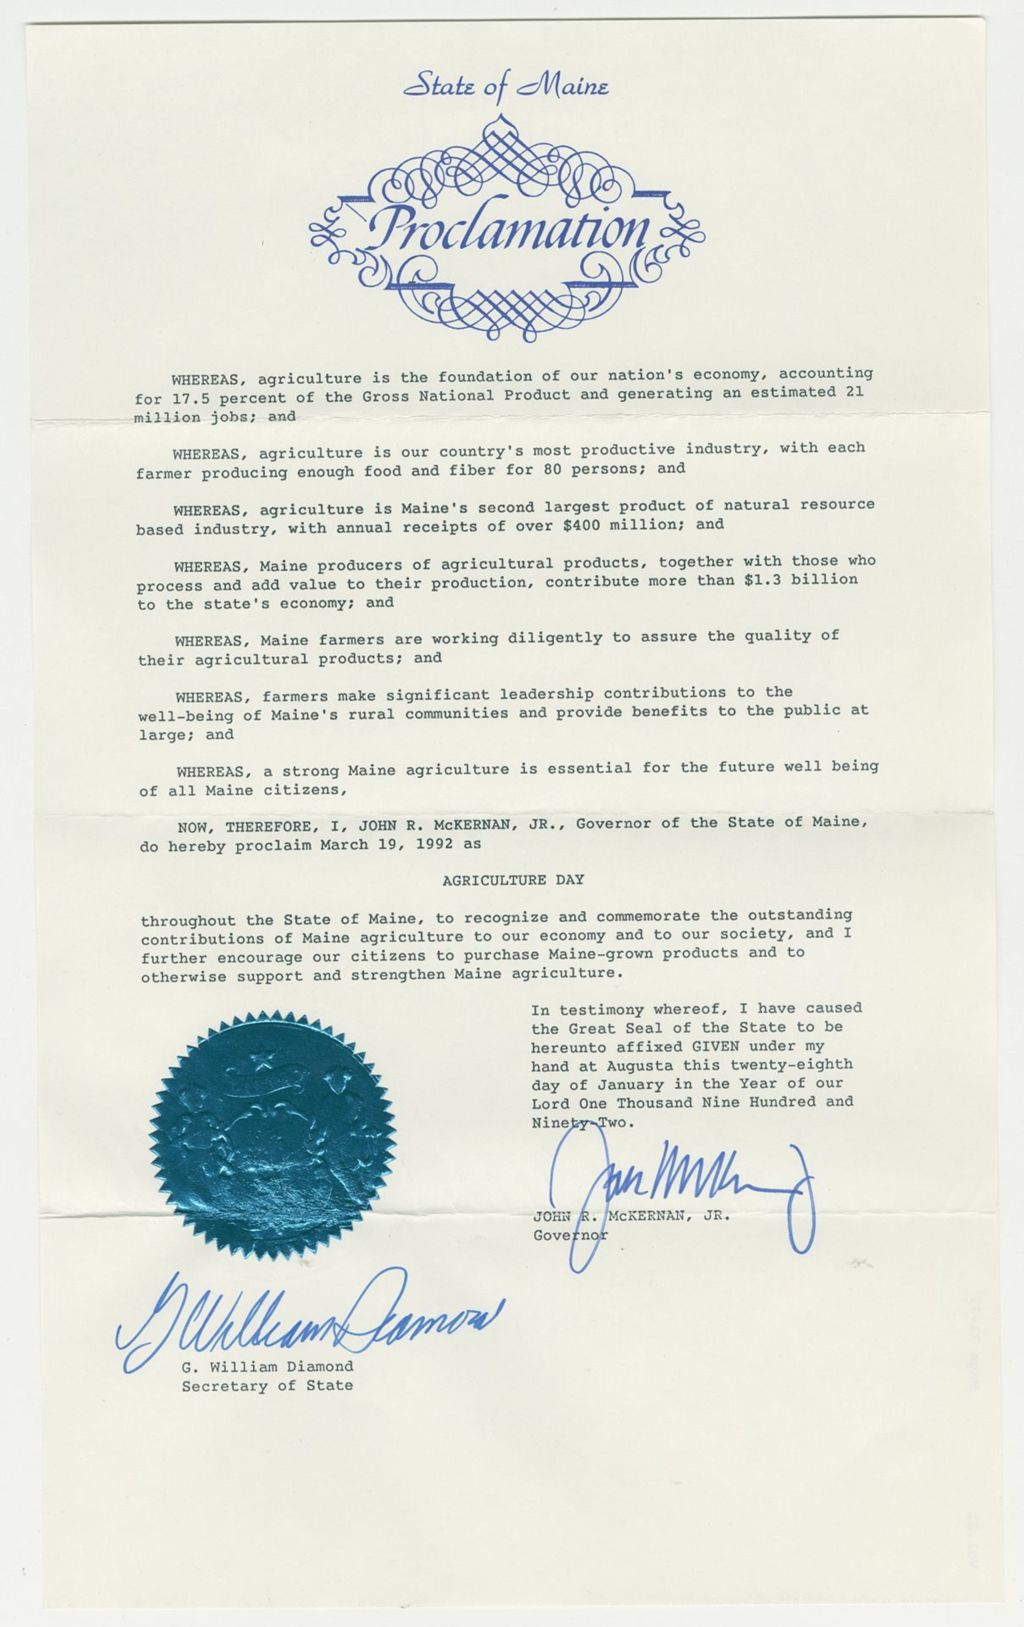 State of Maine
Proclamation
WHEREAS, agriculture is the foundation of our nation's economy, accounting
for 17.5 percent of the Gross National Product and generating an estimated 21
million jobs; and
WHEREAS, agriculture is our country's most productive industry, with each
farmer producing enough food and fiber for 80 persons; and
WHEREAS, agriculture is Maine's second largest product of natural resource
based industry, with annual receipts of over $400 million; and
WHEREAS, Maine producers of agricultural products, together with those who
process and add value to their production, contribute more than $1.3 billion
to the state's economy; and
WHEREAS, Maine farmers are working diligently to assure the quality of
their agricultural products; and
WHEREAS, farmers make significant leadership contributions to the
well-being of Maine's rural communities and provide benefits to the public at
large; and
WHEREAS, a strong Maine agriculture is essential for the future well being
of all Maine citizens,
NOW, THEREFORE, I, JOHN R. McKERNAN, JR., Governor of the State of Maine,
do hereby proclaim March 19, 1992 as
AGRICULTURE DAY
throughout the State of Maine, to recognize and commemorate the outstanding
contributions of Maine agriculture to our economy and to our society, and I
further encourage our citizens to purchase Maine-grown products and to
otherwise support and strengthen Maine agriculture.
In testimony whereof, I have caused
the Great Seal of the State to be
hereunto affixed GIVEN under my
hand at Augusta this twenty-eighth
day of January in the Year of our
Lord One Thousand Nine Hundred and
Ninety-Two.
JOHN R. McKERNAN, JR.
Governor
G William Diamond
G. William Diamond
Secretary of State